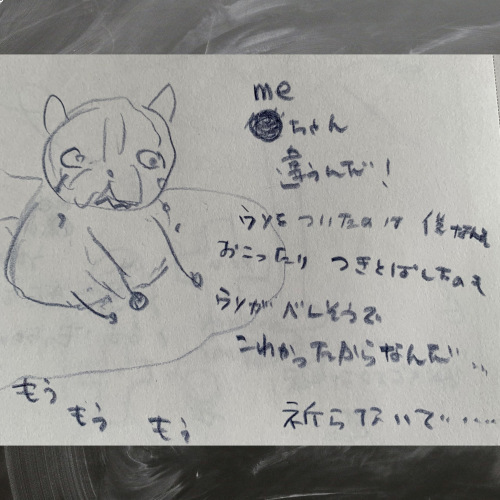 me
ちゃん
違うんだ!
ウソをついたのは 僕なんだ
おこったり つきとばしたのも
ウソが バレそうで
こわかったからなんだ…
もう
もう
もう
祈らないで……